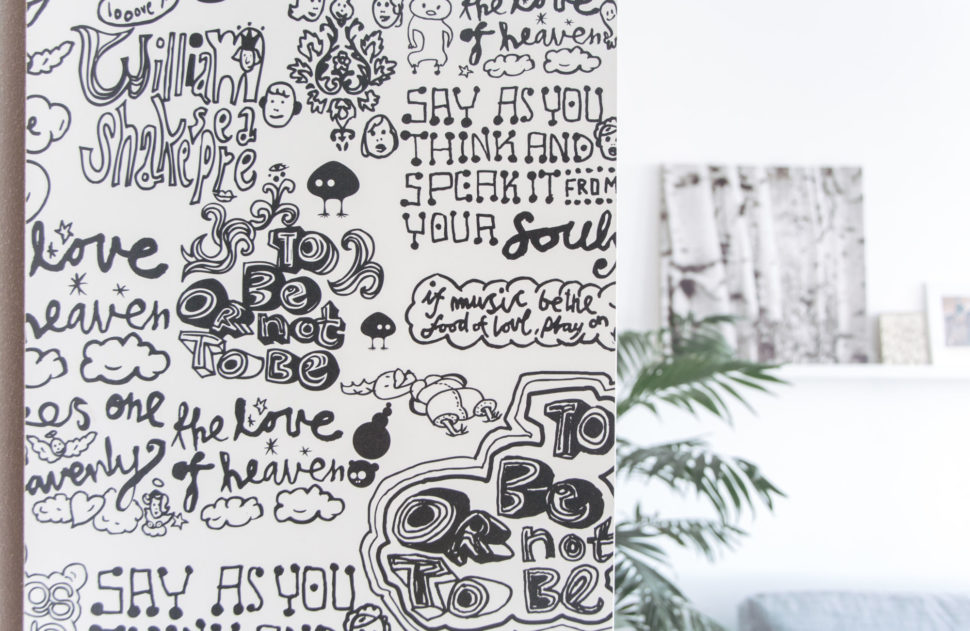 looove
William
Shakespeare
the love
of heaven
SAY AS YOU
THINK AND
SPEAK IT FROM
YOUR Soul
TO
Be
OR not
TO Be
love
heaven
if music be the
food of love, play on
one
the love
of heaven
TO
Be
OR not
TO Be
SAY AS YOU
THINK AND